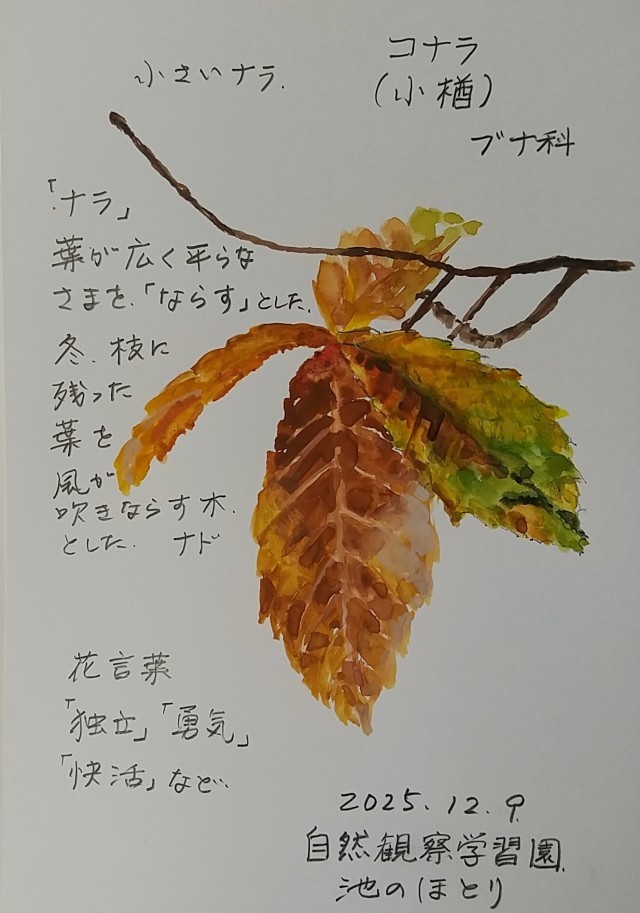 コナラ
小さいナラ.
(小楢)
ブナ科
「ナラ」
葉が広く平らな
さまを、「ならす」とした.
冬、枝に
残った
葉を
風が
吹きならす木.
とした. ナド
花言葉
「独立」「勇気」
「快活」など..
2025.12.9.
自然観察学習園.
池のほとり